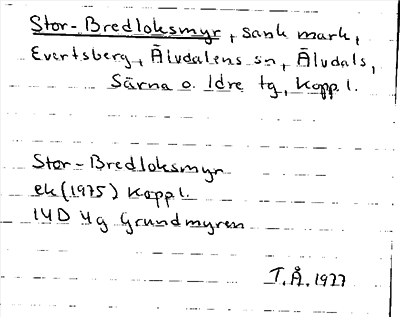 Stor-Bredloksmyr, sank mark,
Evertsberg, Älvdalens sn, Älvdals,
Särna o. Idre tg, Kopp l.
Stor-Bredloksmyr
ek (1975) Kopp l.
14D 4g Grundmyren
T.Å. 1977